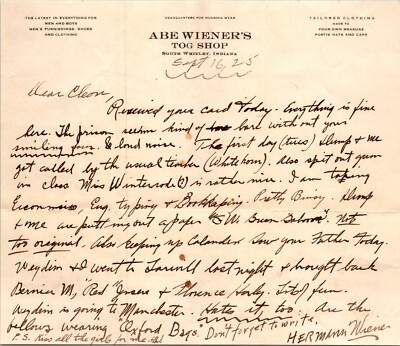 THE LATEST IN EVERYTHING FOR
MEN AND BOYS
MEN'S FURNISHINGS, SHOES
AND CLOTHING
HEADQUARTERS FOR NUNBUSH WEAR
ABE WIENER'S
TOG SHOP
SOUTH WHITLEY, INDIANA
TAILORED CLOTHING
MADE TO
YOUR OWN MEASURE
PORTIS HATS AND CAPS
Sept 16, 25
Dear Cleon,
Received your card today. Everything is fine
here. The prison seems kind of bare with out your
smiling face & loud noise. The first day (tues) Hump & me
got called by the usual teacher (Whitehorn). Also spit out gum
in class Miss Winterrode(?) is rather nice. I am taking
Economics, Eng, typing & Bookkeeping. Pretty Busy. Hump
& me are putting out a paper "SW Green". Not
too original. Also keeping up calander. Saw your Father today.
& I went to Larwill last night & brought back
Bernice M, Red & Florence Harley. Lots of fun.
is going to Manchester. Hate it, too. Are the
fellows wearing Oxford Bags. Don't forget to write.
HERMANN Wiener
P.S. Kiss all the girls for me.